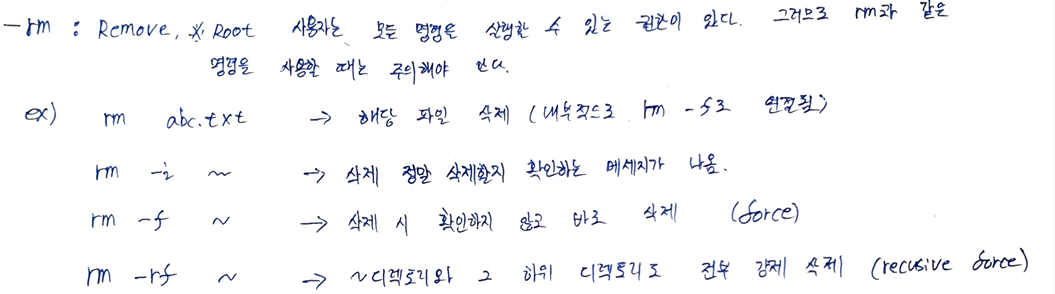 -rm : Remove, ※ Root 사용자는 모든 명령을 실행할 수 있는 권한이 있다. 그러므로 rm과 같은
명령을 사용할 때는 주의해야 한다.
ex) rm abc.txt → 해당 파일 삭제 (내부적으로 rm -f로 연결됨)
rm -i ~ → 삭제 정말 삭제할지 확인하는 메세지가 나옴.
rm -f ~ → 삭제 시 확인하지 않고 바로 삭제 (force)
rm -rf ~ → ~디렉토리와 그 하위 디렉토리도 전부 강제 삭제 (recusive force)